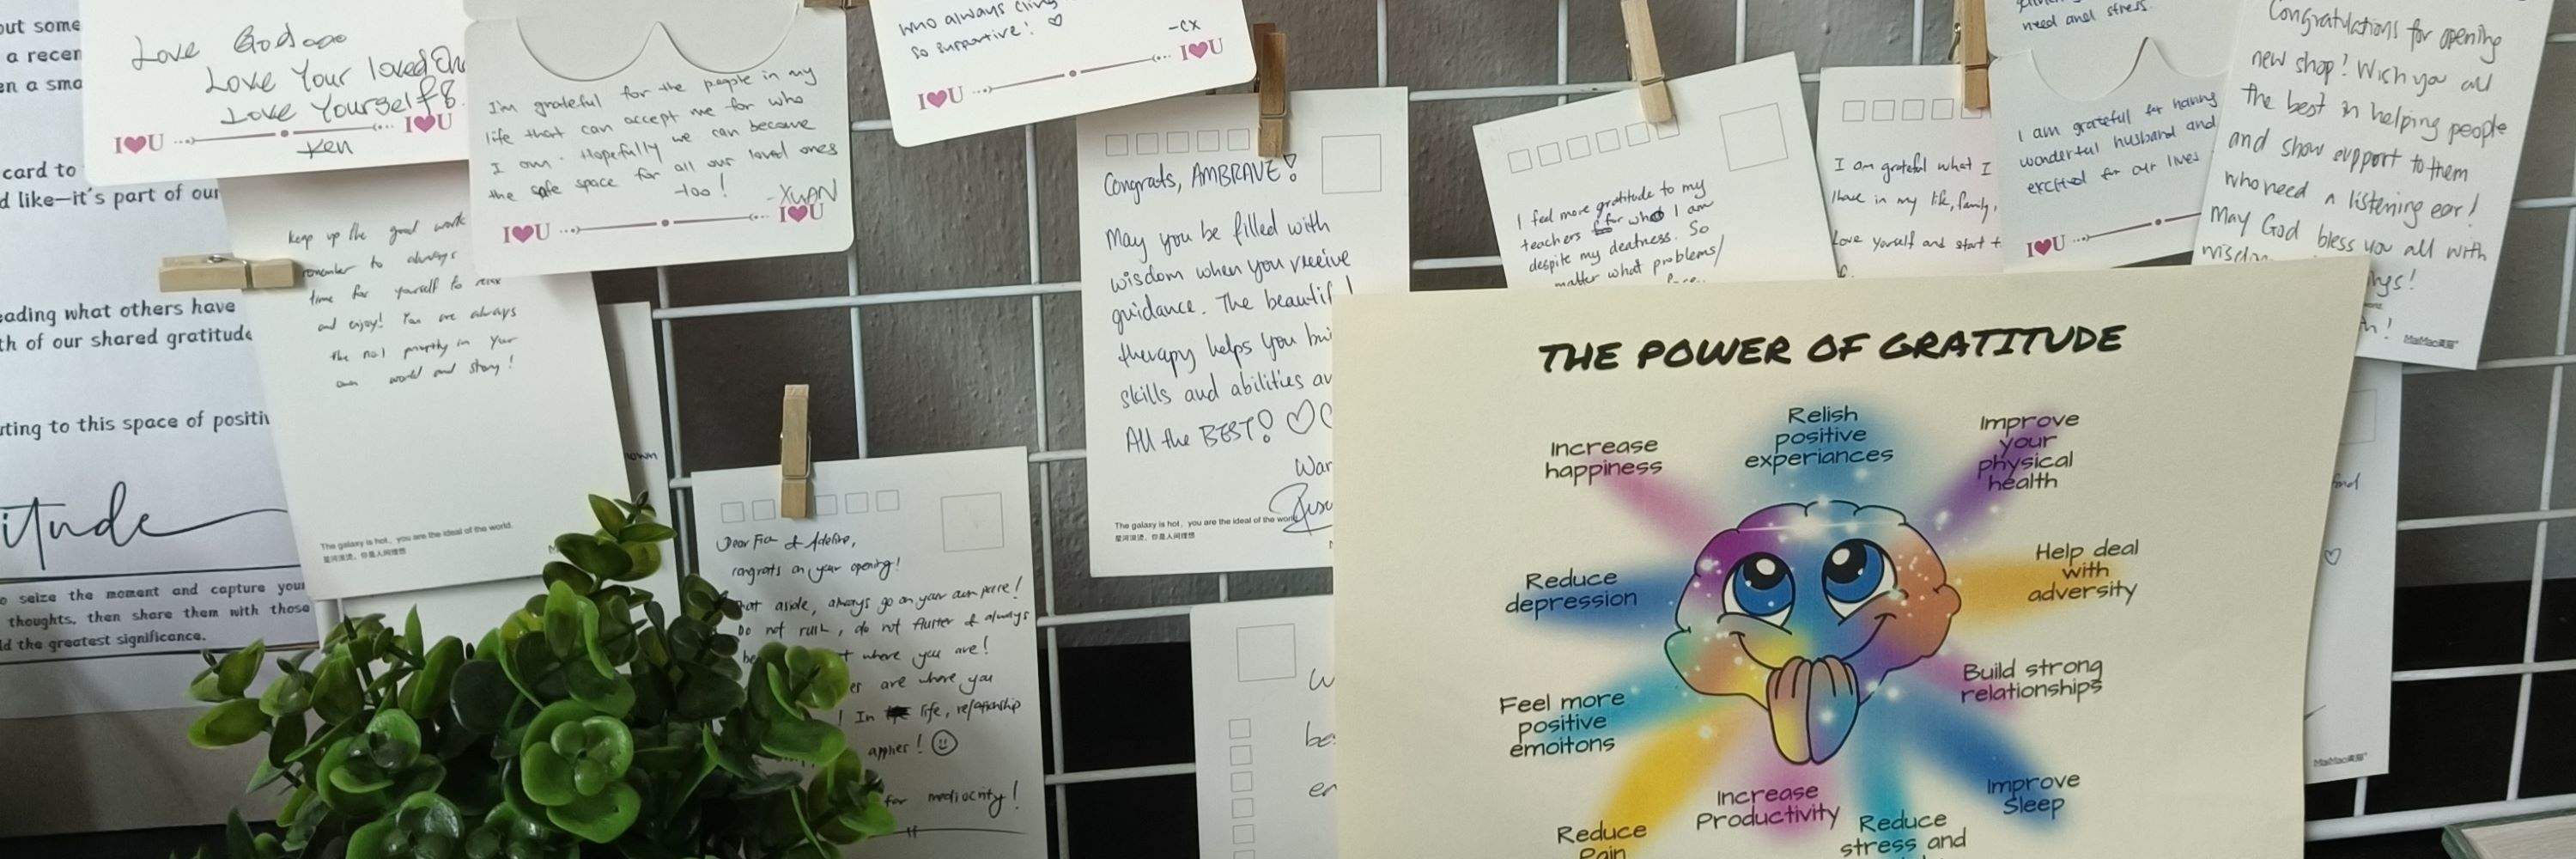 out some
a recen
en a sma
card to
d like—it's part of our
eading what others have
th of our shared gratitude
rting to this space of positiv
itude
o seize the moment and capture your
thoughts, then share them with those
ld the greatest significance.
Love God
Love Your loved
Love Yourself
I♥U I♥U
Ken
keep up the good work
remember to always
time for yourself to relax
and enjoy! You are always
the no.1 in your
own world and story!
The galaxy is hot, you are the ideal of the world.
星河滚烫，你是人间理想
I'm grateful for the people in my
life that can accept me for who
I am. Hopefully we can become
the safe space for all our loved ones
too! -XUAN
I♥U I♥U
own
who always cling
so supportive! ♡
-cx
I♥U I♥U
Dear Fia & Adeline,
congrats on your opening!
at aside, always go on your own pace!
Do not rush, do not fluster & always
be t where you are!
er are where you
! In life, relationship
applies! ☺
for mediocrity!
Congrats, AMBRAVE!
May you be filled with
wisdom when you receive
guidance. The beautif
therapy helps you bui
skills and abilities an
All the BEST! ♡
War
The galaxy is hot, you are the ideal of the world
星河滚烫，你是人间理想
W
be
en
I feel more gratitude to my
teachers for who I am
despite my deafness. So
matter what problems/
I am grateful what I
have in my life, family,
Love yourself and start t
need and stress.
I am grateful for having
wonderful husband and
excited for our lives
I♥U
Congratulations for opening
new shop! Wish you all
the best in helping people
and show support to them
who need a listening ear!
May God bless you all with
wisdom
ngs!
h!
MaiMao
and
♡
MaiMao
THE POWER OF GRATITUDE
Increase
happiness
Relish
positive
experiances
Improve
your
physical
health
Reduce
depression
Help deal
with
adversity
Feel more
positive
emoitons
Build strong
relationships
Reduce
Pain
Increase
Productivity
Reduce
stress and
Improve
Sleep